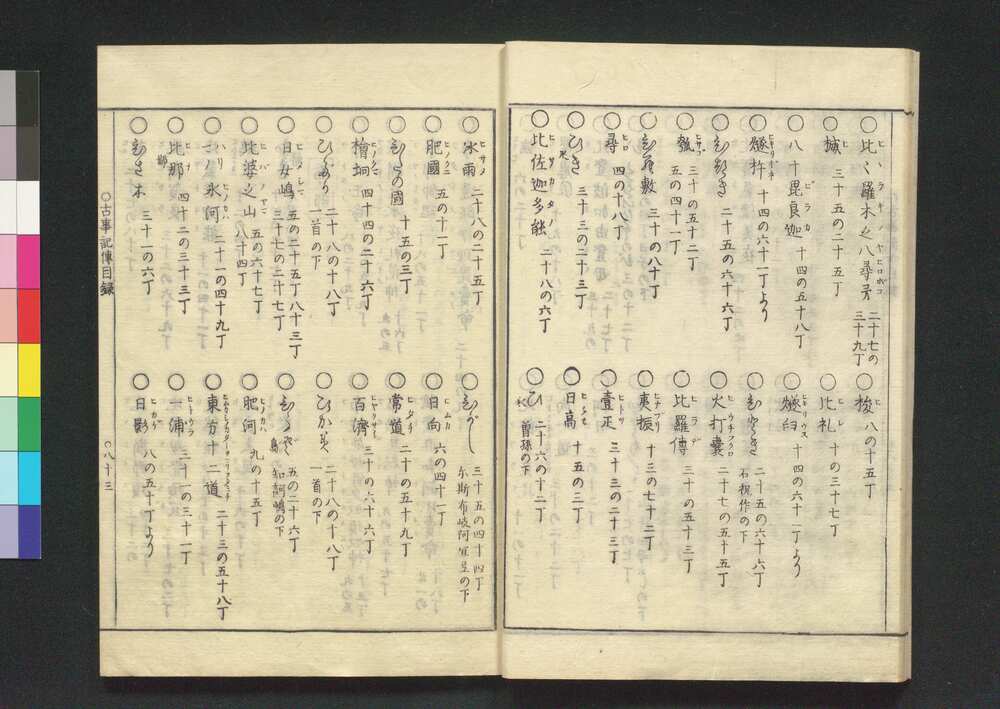 〇比〻羅木之八尋矛 二十七の三十九丁
〇椷 三十五の二十五丁
〇八十毘良迦 十四の五十八丁
〇燧杵 十四の六十一丁より
二十五の六十六丁
三十の五十二丁 五の四十一丁
敷 三十の八十丁
〇尋 四の十八丁
〇ひき 三十三の二十三丁
〇比佐迦多能 二十八の六丁
〇梭 八の十五丁
〇比礼 十の三十七丁
〇燧臼 十四の六十一丁より
二十五の六十六丁 石祝作の下
〇火打嚢 二十七の五十五丁
〇比羅傳 三十の五十三丁
〇夷振 十三の七十二丁
〇壹疋 三十三の二十三丁
〇日高 十五の三丁
〇ひ 二十六の十二丁 曽孫の下
〇氷雨 二十八の二十五丁
〇肥國 五の十一丁
の國 十五の三丁
〇檜垌 四十四の二十六丁
二十八の十八丁 一首の下
〇日女嶋 五の二十五丁 八十三丁 三十七の二十七丁
〇比婆之山 五の六十七丁 八十四丁
氷河 二十一の四十九丁
〇比那 四十二の三十三丁
木 三十一の六丁
三十五の四十四丁 尓斯布岐阿宜弖の下
〇日向 六の四十一丁
〇常道 二十の五十九丁
〇百濟 三十の六十六丁
二十八の十八丁 一首の下
五の二十六丁 知訶嶋の下
〇肥河 九の十五丁
〇東方十二道 二十三の五十八丁
〇一浦 三十一の三十一丁
〇日影 八の五十丁より
〇古事記傳目録
〇八十三